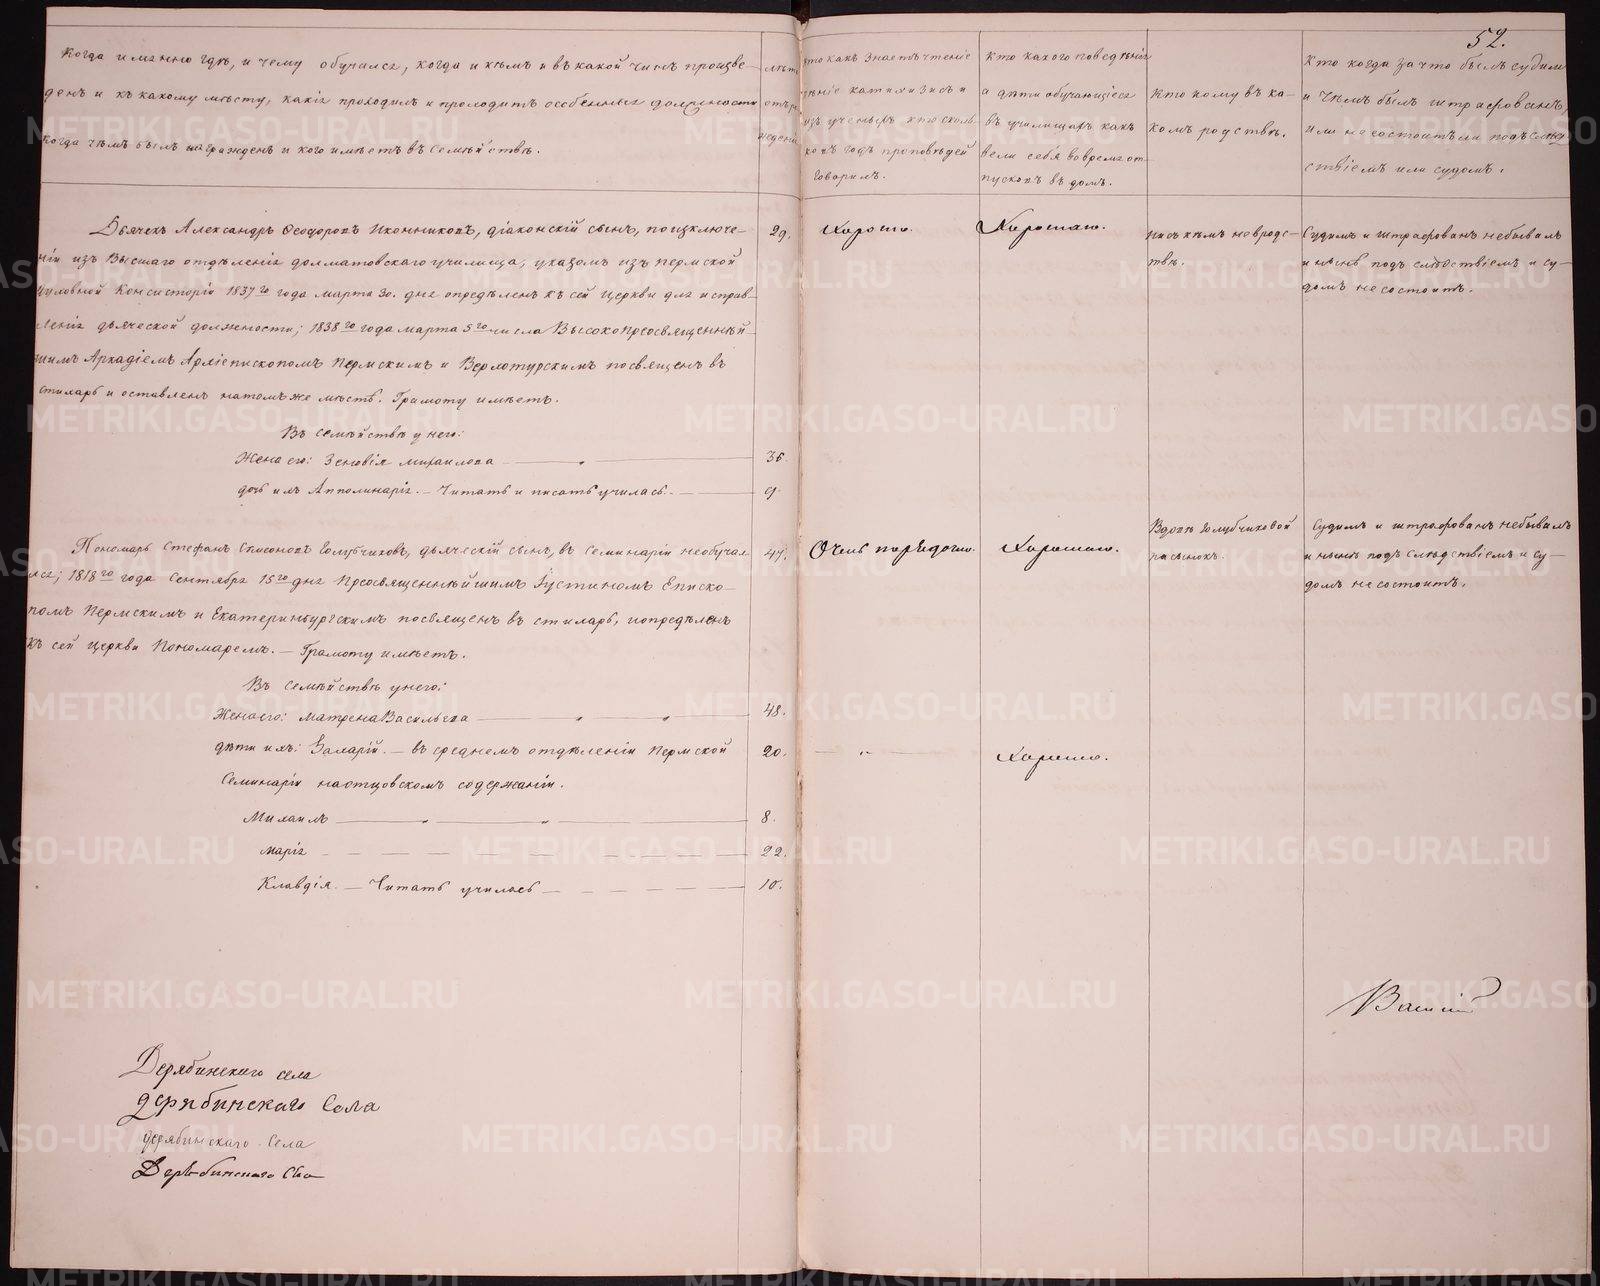 52.
Когда и именно гдѣ, и чему обучался, когда и кѣмъ и въ какой чинъ произве-
денъ и къ какому мѣсту, какія проходилъ и проходитъ особенныя должности
когда чѣмъ былъ награжденъ и кого имѣетъ въ семействѣ.
лѣтъ
отъ ро
жденія
кто какъ знаетъ чтеніе
пѣніе катихизисъ и
изъ ученыхъ кто сколь-
ко въ годъ проповѣдей
говорилъ.
Кто какого поведѣнія
а дѣти обучающіеся
въ училищахъ какъ
вели себя во время от-
пусковъ въ домъ.
Кто кому въ ка-
комъ родствѣ.
Кто когда за что былъ судимъ
и чѣмъ былъ штрафованъ,
или не состоитъ ли подъ слѣд
ствіемъ или судомъ.
Дьячекъ Александръ Феодоровъ Иконниковъ, діаконскій сынъ, по изключе-
ніи изъ Высшаго отдѣленія долматовскаго училища, указомъ изъ Пермской
Духовной Консисторіи 1837го года марта 30. дня опредѣленъ къ сей Церкви для исправ-
ленія дьяческой должности; 1838го года марта 5го числа Высокопреосвященнѣй-
шимъ Аркадіемъ Архіепископомъ Пермскимъ и Верхотурскимъ посвященъ въ
стихарь и оставленъ на томъ же мѣстѣ. Грамоту имѣетъ.
29.
Хорошо.
Хорошаго.
Ни съ кѣмъ не въ родс-
твѣ.
Судимъ и штрафованъ не бывалъ
и нынѣ подъ слѣдствіемъ и су-
домъ не состоитъ.
Въ семействѣ у него:
Жена его: Зеновія Михаилова 36.
дочь ихъ Апполинарія. – Читать и писать училась. 9.
Пономарь Стефанъ Симоновъ Голубчиковъ, дьяческій сынъ, въ Семинаріи не обучал-
ся; 1818го года Сентября 15го дня Преосвященнѣйшимъ Іустиномъ Еписко-
помъ Пермскимъ и Екатеринбургскимъ посвященъ въ стихарь, и опредѣленъ
къ сей Церкви Пономаремъ. – Грамоту имѣетъ.
47.
Очень порядочно.
Хорошаго.
Вдовѣ Голубчиковой
пасынокъ.
Судимъ и штрафованъ не бывалъ
и нынѣ подъ слѣдствіемъ и су-
домъ не состоитъ.
Въ семействѣ у него:
Жена его: Матрена Васильева 48.
дѣти ихъ: Валарій. – въ среднемъ отдѣленіи Пермской 20. Хорошо.
Семинаріи на отцовскомъ содержаніи.
Михаилъ 8.
Марія 22.
Клавдія. – Читать училась 10.
Дерябинскаго села
дерябинскаго Села
дерябинскаго Села
Дерябинскаго